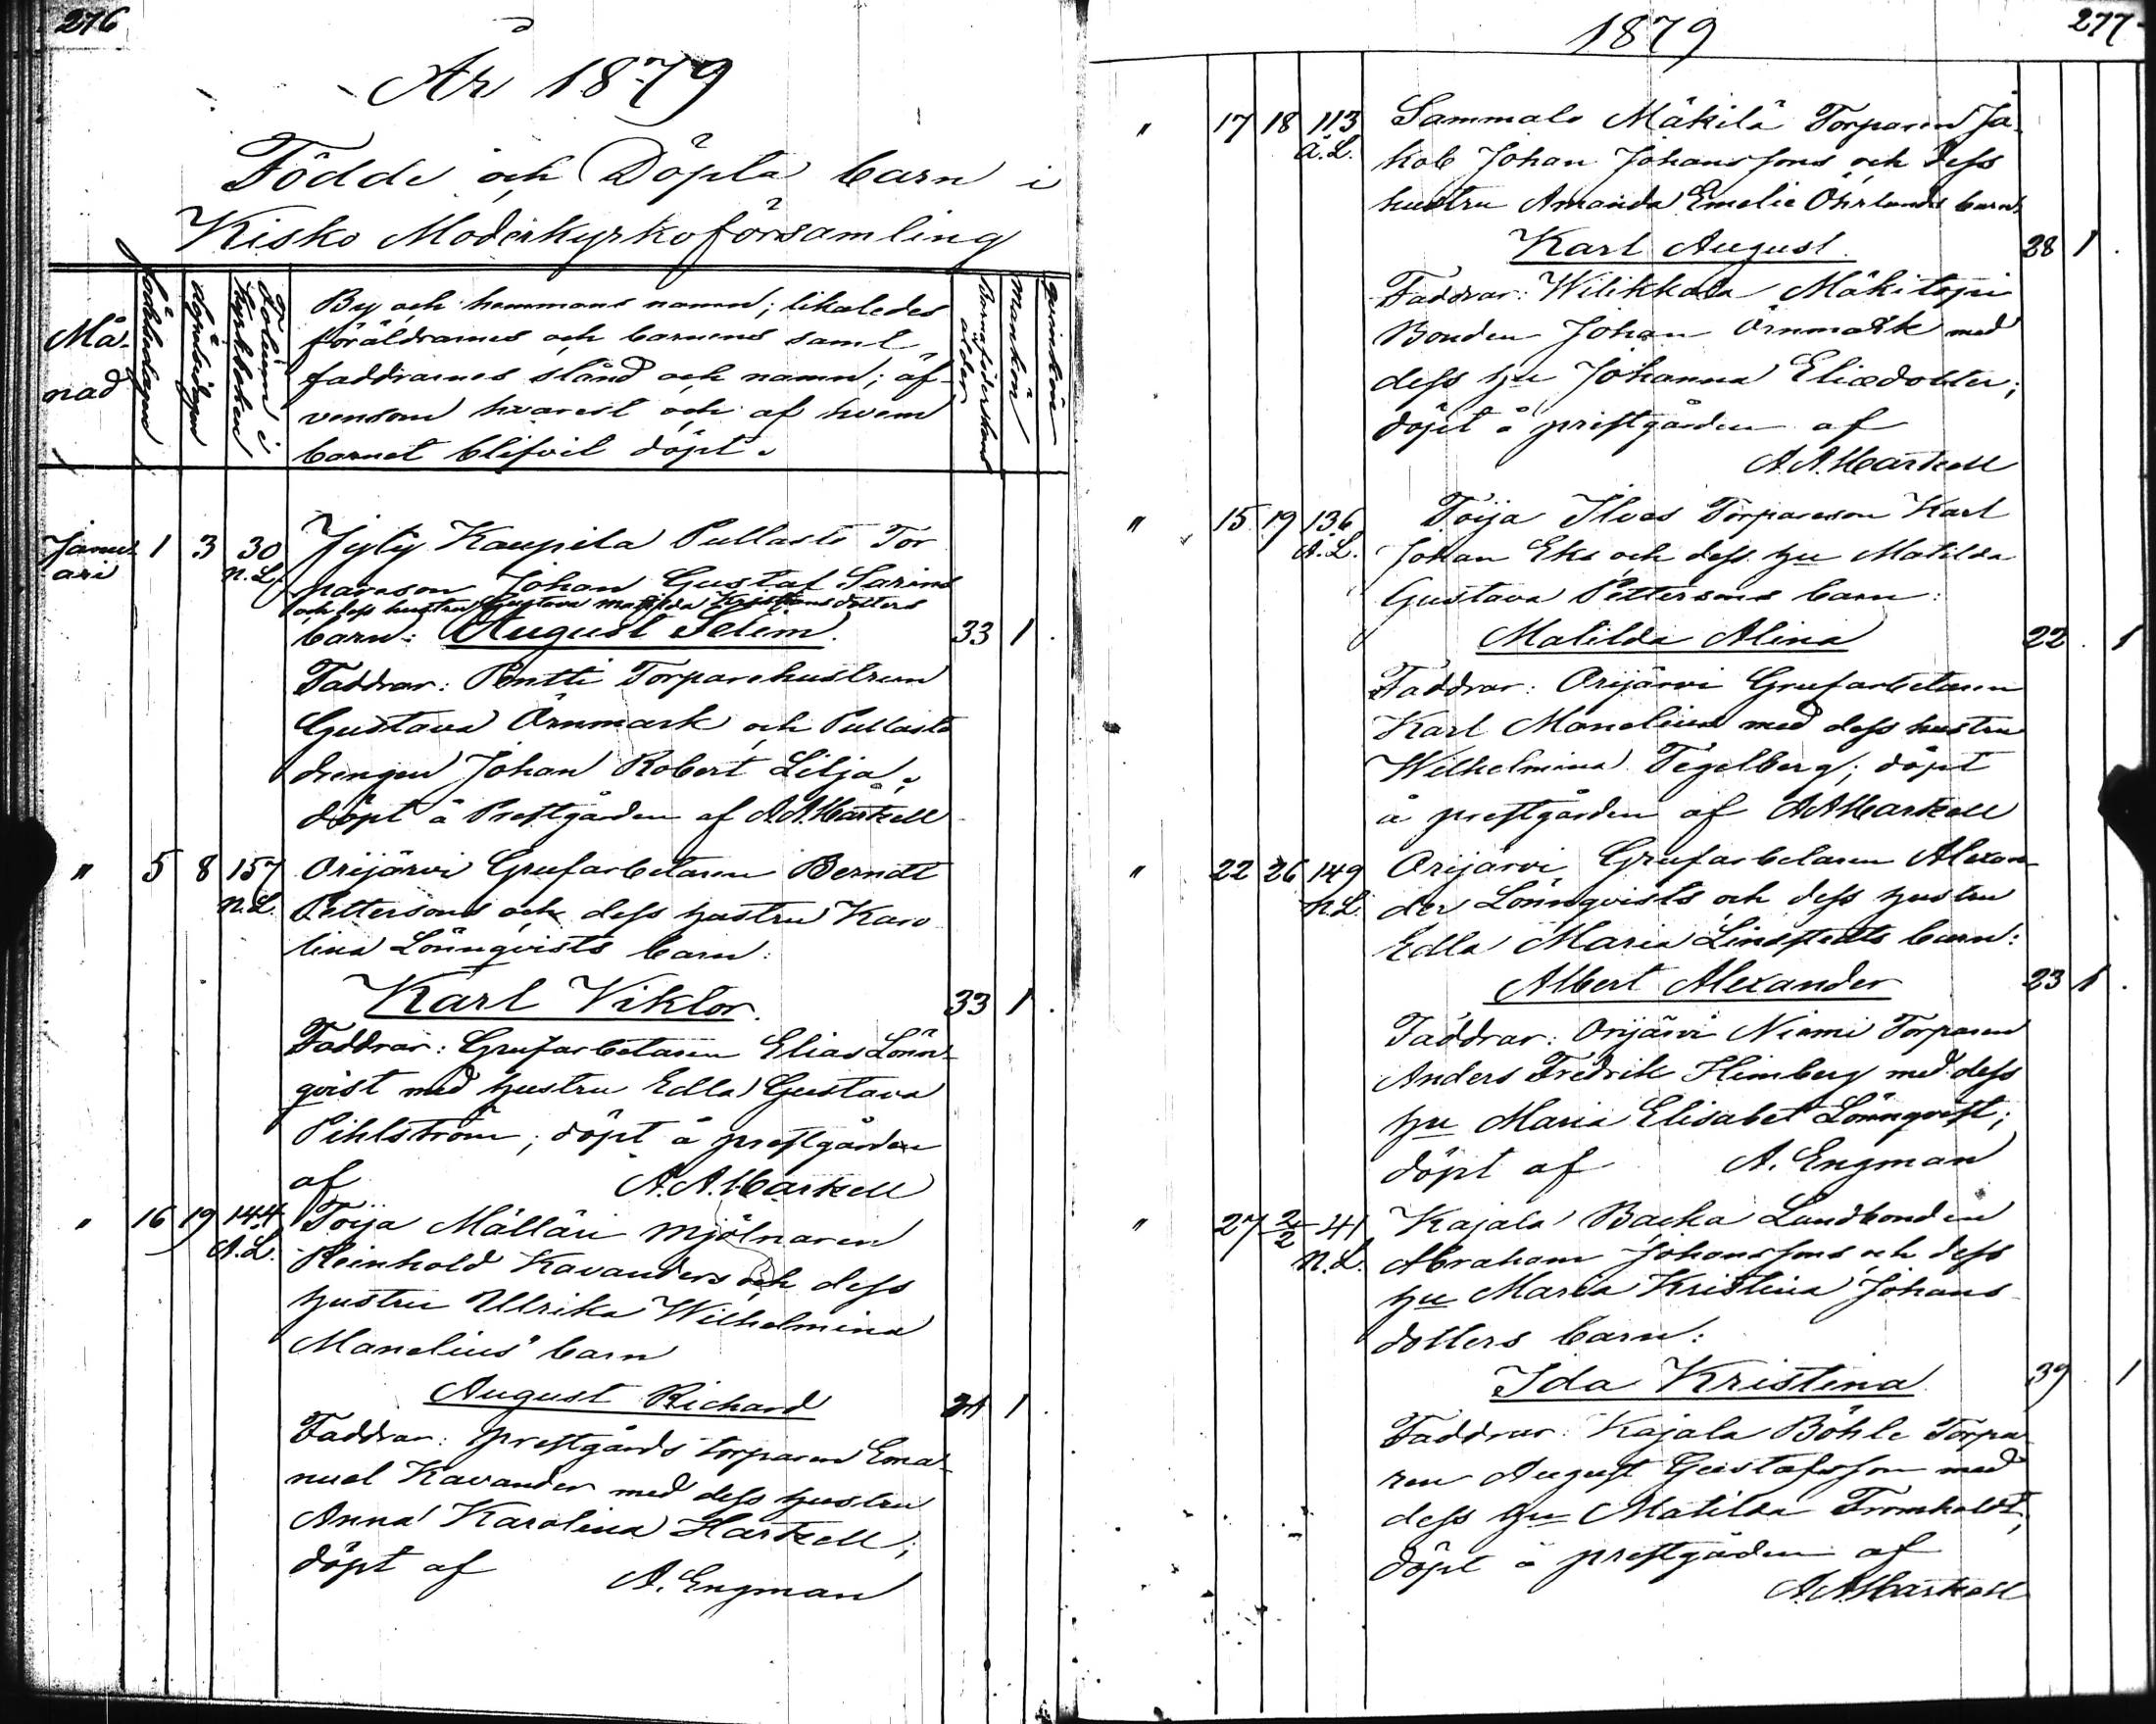 276
År 1879
Födde och Döpta barn i
Kisko Moderkyrkoförsamling
Må-
nad
födelsedagen
döpelsedagen
Folium i
kyrkboken
By och hemmans namn; likaledes
föräldrarnes och barnens samt
faddrarnes stånd och namn; äf-
vensom hvarest och af hvem
barnet blifvit döpt.
Barnaföderskans
ålder
Mankön
qvinkön
Janu-
ari
1 3 30
n.L.
Jyly Kaupila Pullasto Tor
pareson Johan Gustaf Sarins
och dess hustru Gustava Matilda Kristians dotters
barn: August Selim. 33 1
Faddrar: Pentti Torparehustrun
Gustava Örnmark och Pullasto
drengen Johan Robert Lilja;
döpt å Prestgården af A.A. Hartzell
" 5 8 157
n.L.
Orijärvi Grufarbetaren Berndt
Pettersons och dess hustru Karo
lina Lönnqvists barn:
Karl Viktor. 33 1
Faddrar: Grufarbetaren Elias Lönn-
qvist med hustru Edla Gustava
Pihlström; döpt å prestgården
af A.A. Hartzell
" 16 19 144
A.L.
Toija Mälläri Mjölnaren
Reinhold Kavanders och dess
hustru Ulrika Wilhelmina
Manelius barn
August Richard 31 1
Faddrar: prestgårds torparen Ema-
nuel Kavander med dess hustru
Anna Karolina Hartzell;
döpt af A. Engman
1879
277
" 17 18 113
A.L.
Sammalo Mäkilä Torparen Ja-
kob Johan Johanssons och dess
hustru Amanda Emelie Öhrlunds barn
Karl August. 28 1
Faddrar: Wilikkala Mäkitopi
Bonden Johan Örnmark med
dess hu Johanna Eliædotter;
döpt å prestgården af
A.A. Hartzell
" 15 19 136
A.L.
Toija Ilvas Torpareson Karl
Johan Eks och dess hu Matilda
Gustava Pettersons barn:
Matilda Alina 22 1
Faddrar: Orijärvi Grufarbetaren
Karl Manelius med dess hustru
Wilhelmina Tegelberg; döpt
å prestgården af A.A. Hartzell
" 22 26 149
n.L.
Orijärvi Grufarbetaren Alexan-
der Lönnqvists och dess hustru
Edla Maria Lindstedts barn:
Albert Alexander 23 1
Faddrar: Orijärvi Niemi Torparen
Anders Fredrik Himberg med dess
hu Maria Elisabet Lönnqvist;
döpt af A. Engman
" 27 2/2 41
n.L.
Kajala Backa Landbonden
Abraham Johanssons och dess
hu Maria Kristina Johans
dotters barn:
Ida Kristina 39 1
Faddrar: Kajala Böhle Torpa
ren August Gustafsson med
dess hu Matilda Tromholdt;
döpt å prestgården af
A.A. Hartzell